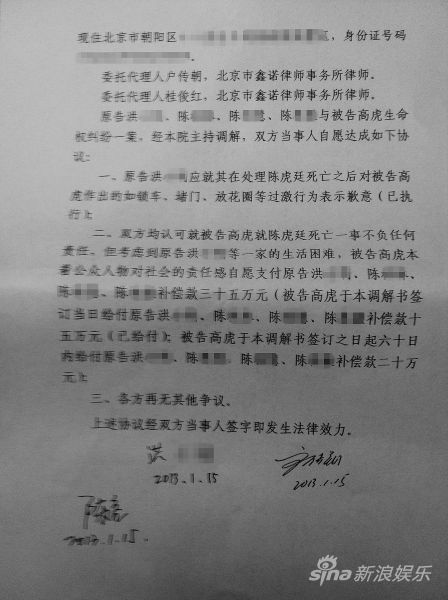 现住北京市朝阳区 ，身份证号码
委托代理人户传朝，北京市鑫诺律师事务所律师。
委托代理人桂俊红，北京市鑫诺律师事务所律师。
原告洪 、陈 、陈 、陈 与被告高虎生命
权纠纷一案，经本院主持调解，双方当事人自愿达成如下协
议：
一、原告洪 应就其在处理陈虎廷死亡之后对被告高
虎作出的如锁车、堵门、放花圈等过激行为表示歉意（已执
行）；
二、双方均认可就被告高虎就陈虎廷死亡一事不负任何
责任。但考虑到原告洪 等一家的生活困难，被告高虎本
着公众人物对社会的责任感自愿支付原告洪 、陈 、
陈 、陈 补偿款三十五万元（被告高虎于本调解书签
订当日给付原告洪 、陈 、陈 、陈 补偿款十
五万元（已给付）；被告高虎于本调解书签订之日起六十日
内给付原告洪 、陈 、陈 、陈 补偿款二十万
元）；
三、各方再无其他争议。
上述协议经双方当事人签字即发生法律效力。
洪
2013.1.15
2013.1.15
陈亮
2013.1.15.
sina新浪娱乐